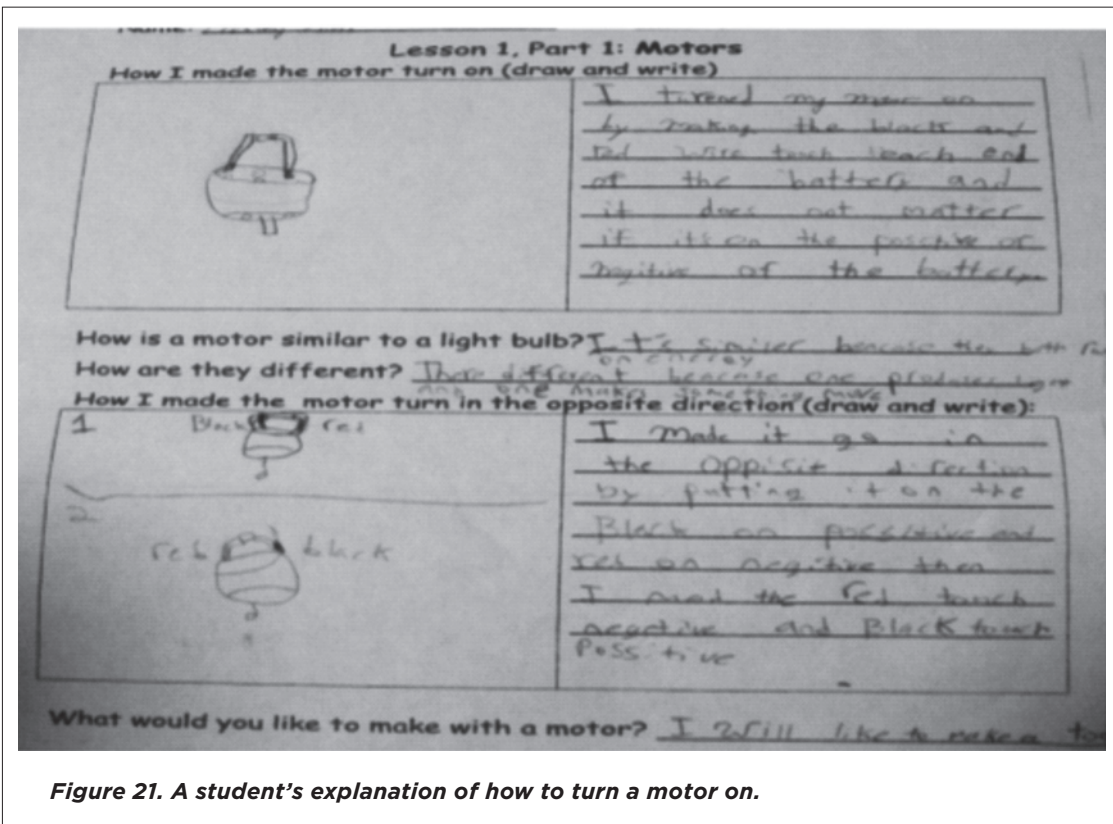 Lesson 1, Part 1: Motors
How I made the motor turn on (draw and write)
I my on
by making the black and
red wire touch each end
of the battery and
it does not matter
if its on the or
of the battery
How is a motor similar to a light bulb? It's because both
on energy
How are they different? different because one
and one makes something move
How I made the motor turn in the opposite direction (draw and write):
1
Black red
2
red black
I made it go in
the direction
by putting it on the
Black on and
red on negitive then
I the red touch
negative and Black touch
Possitive
What would you like to make with a motor? I Will like to make a
Figure 21. A student's explanation of how to turn a motor on.